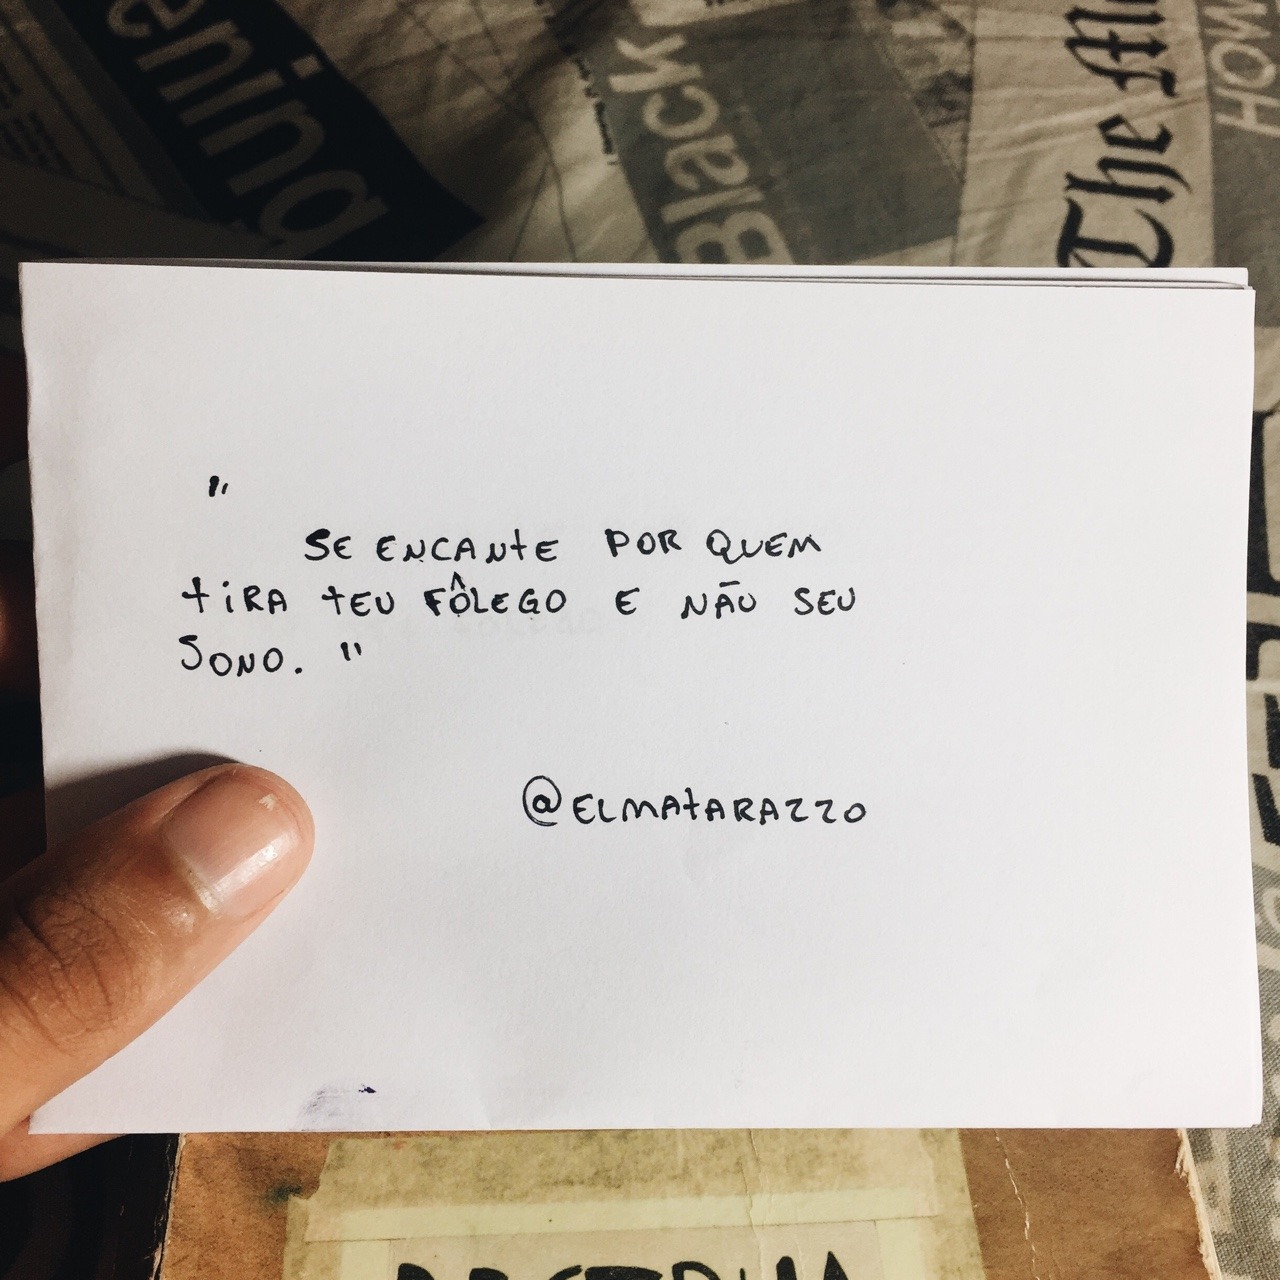 ening
Black
The
HOW
"
SE ENCANTE POR QUEM
TIRA TEU FÔLEGO E NÃO SEU
SONO. "
@ELMATARAZZO